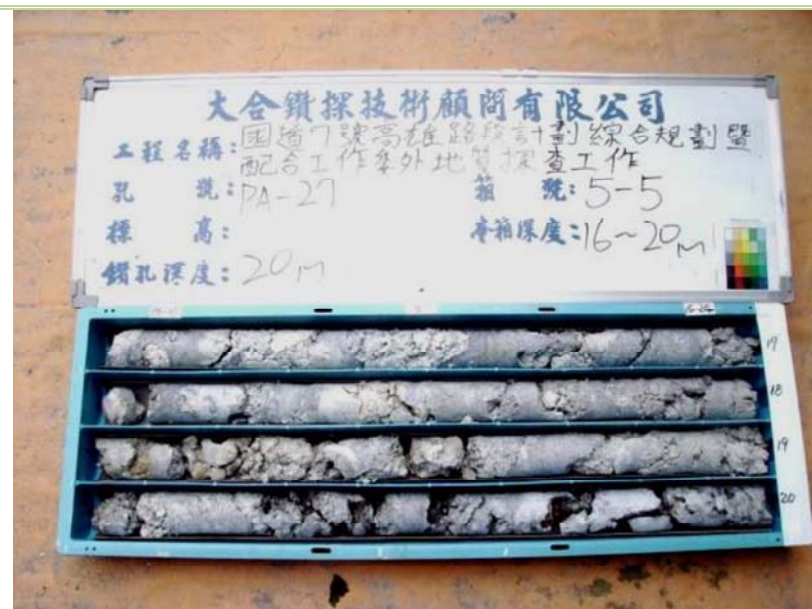 大合鑽探技術顧問有限公司
工程名稱:國道7號高雄路段計劃綜合規劃暨
配合工作委外地質探查工作
孔 號:PA-27 箱 號:5-5
標 高: 每箱深度:16~20m
鑽孔深度:20m
17
18
19
20